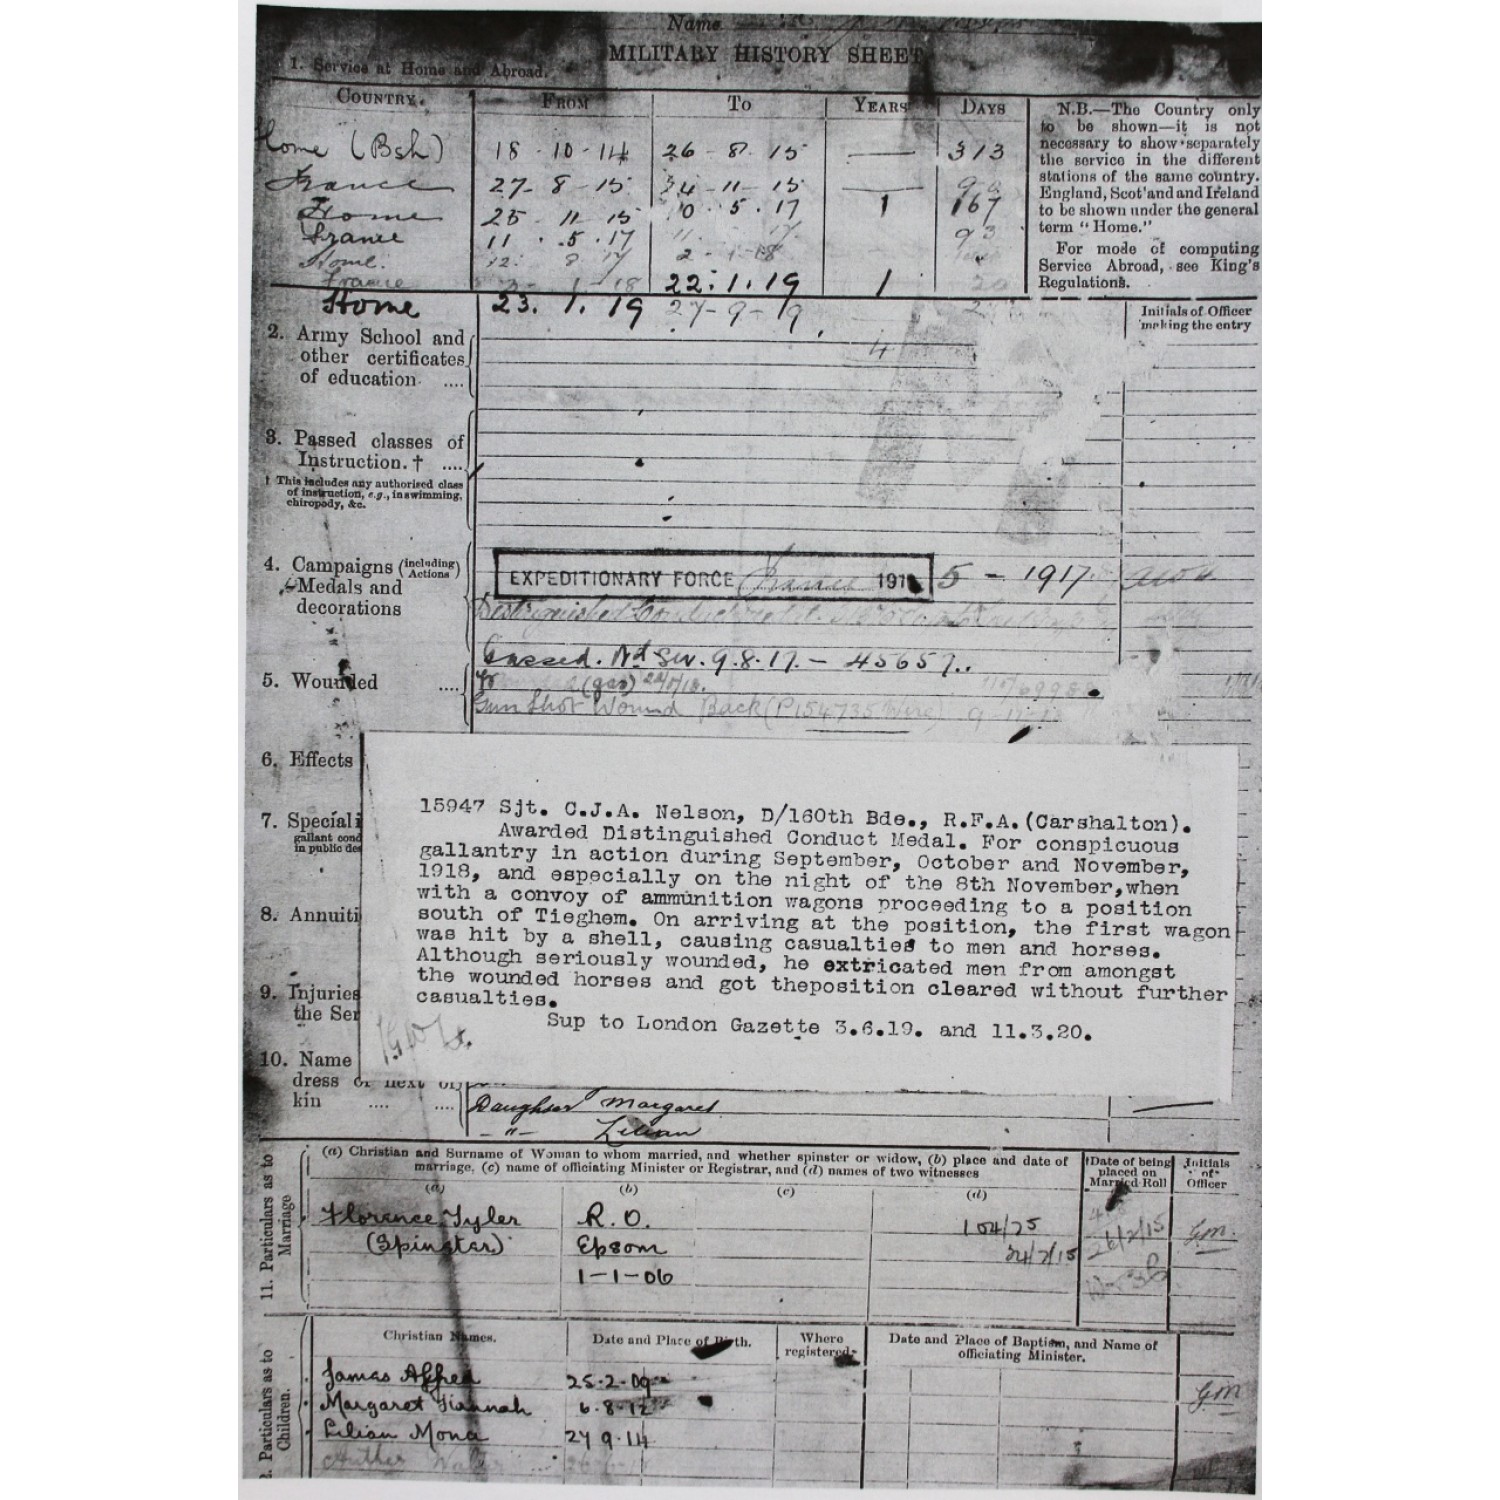 Name
MILITARY HISTORY SHEET
1. Service at Home and Abroad.
COUNTRY. FROM TO YEARS DAYS
Home (Bsh) 18 - 10 - 14 26 - 8 - 15 — 313
France 27 - 8 - 15 24 - 11 - 15 — 90
Home 25 - 11 - 15 10 . 5 . 17 1 167
France 11 . 5 . 17 11 . 17 93
Home. 12 . 8 . 17 2 - 1 - 18
France 1 - 18 22 . 1 . 19 1 20
Home 23 . 1 . 19 27 - 9 - 19
N.B.—The Country only
to be shown—it is not
necessary to show separately
the service in the different
stations of the same country.
England, Scotland and Ireland
to be shown under the general
term "Home."
For mode of computing
Service Abroad, see King's
Regulations.
Initials of Officer
making the entry
2. Army School and
other certificates
of education ....
4
3. Passed classes of
Instruction. † ....
† This includes any authorised class
of instruction, e.g., in swimming,
chiropody, &c.
4. Campaigns (including Actions)
Medals and
decorations
EXPEDITIONARY FORCE France 191 5 - 1917.
Distinguished Conduct
9.8.17. - 45657..
5. Wounded ....
(gas)
Gun Shot Wound Back (P154735 Wire)
6. Effects
7. Speciali
gallant cond
in public des
15947 Sjt. C.J.A. Nelson, D/160th Bde., R.F.A.(Carshalton).
Awarded Distinguished Conduct Medal. For conspicuous
gallantry in action during September, October and November,
1918, and especially on the night of the 8th November,when
with a convoy of ammunition wagons proceeding to a position
south of Tieghem. On arriving at the position, the first wagon
was hit by a shell, causing casualties to men and horses.
Although seriously wounded, he extricated men from amongst
the wounded horses and got theposition cleared without further
casualties.
Sup to London Gazette 3.6.19. and 11.3.20.
8. Annuiti
9. Injuries
the Ser
10. Name
dress of next of
kin .... ....
Daughter Margaret
-"- Lilian
11. Particulars as to
Marriage
(a) Christian and Surname of Woman to whom married, and whether spinster or widow, (b) place and date of
marriage, (c) name of officiating Minister or Registrar, and (d) names of two witnesses
Date of being
placed on
Married Roll
Initials
of
Officer
(a) (b) (c) (d)
Florence Tyler R.O. 104/25
(Spinster) Epsom 24/2/15 26/2/15 GM.
1-1-06
2. Particulars as to
Children.
Christian Names. Date and Place of Birth. Where
registered.
Date and Place of Baptism, and Name of
officiating Minister.
James Alfred 25-2-09 GM
Margaret Hannah 6-8-12
Lilian Mona 27 9.14